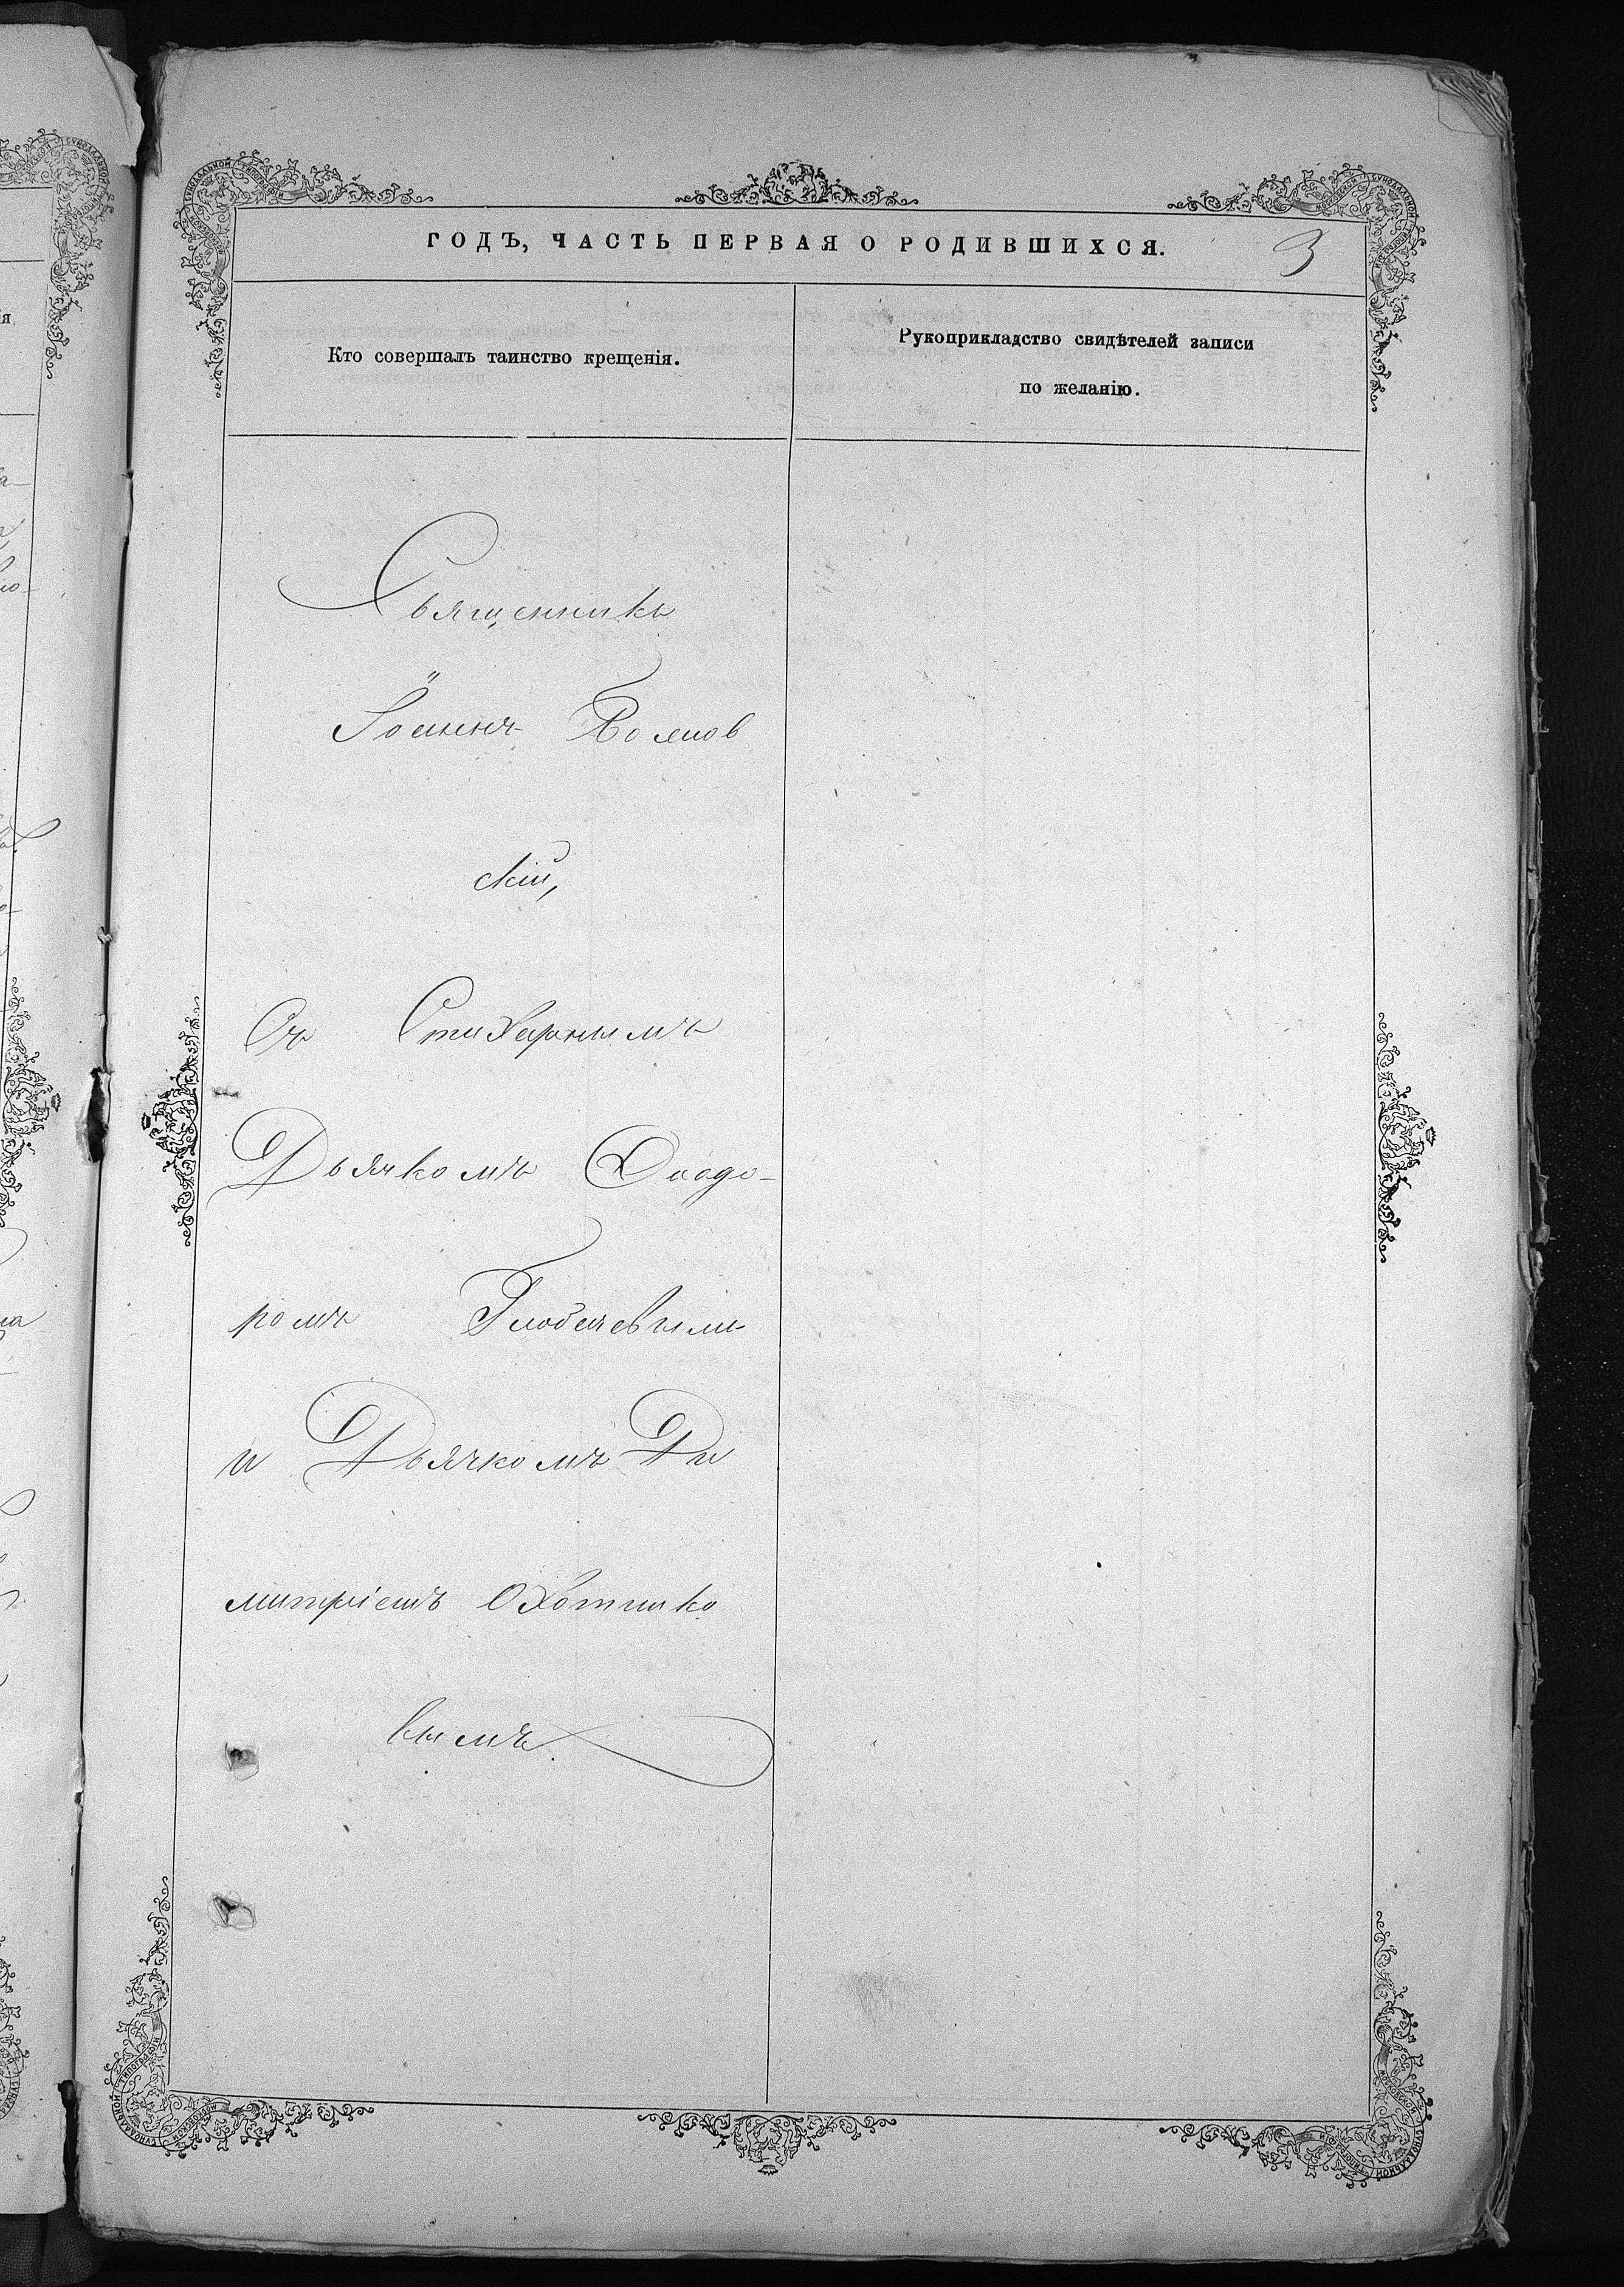 ГОДЪ, ЧАСТЬ ПЕРВАЯ О РОДИВШИХСЯ.
3
Кто совершалъ таинство крещенія.
Рукоприкладство свидѣтелей записи
по желанію.
Священникъ
Іоаннъ
скій,
Съ Стихарнымъ
Дьячкомъ Ѳеодо-
ромъ Глобачевымъ
и Дьячкомъ Ди
митріемъ Охотнико
вымъ.